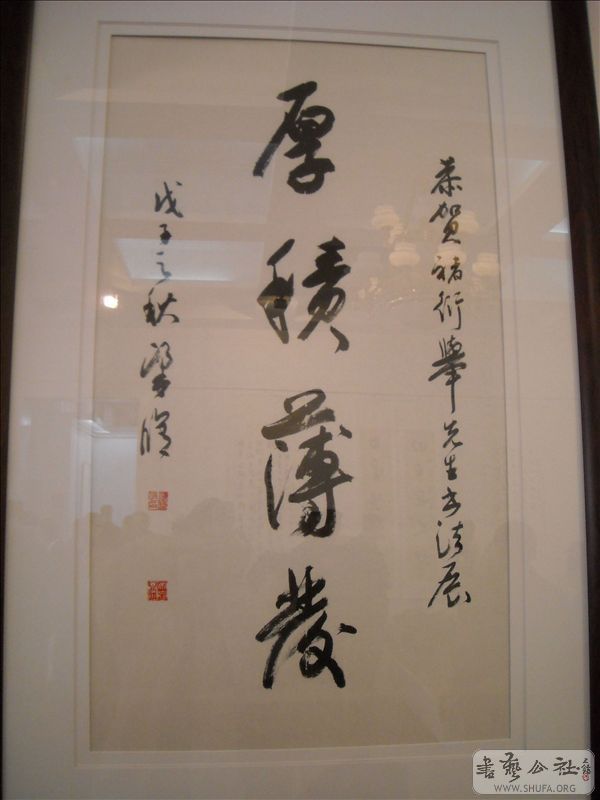 恭贺褚衍舉先生书法展
厚積薄發
戊子之秋 梁
書藝公社
WWW.SHUFA.ORG